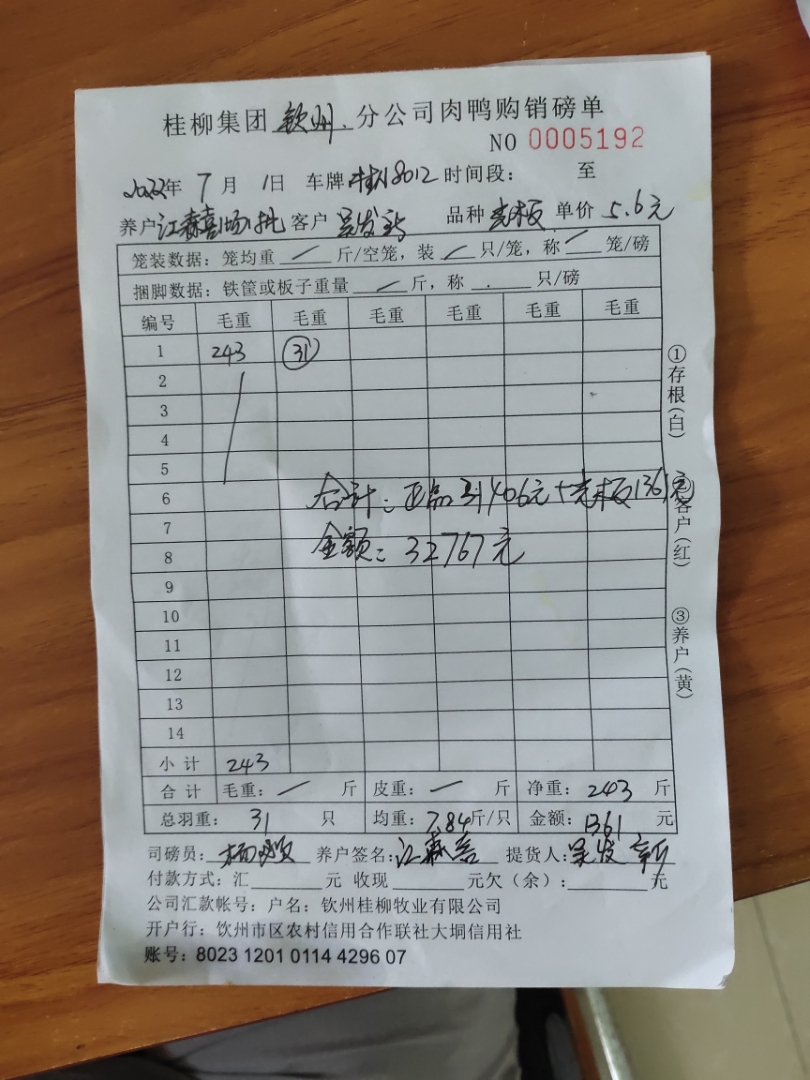 桂柳集团 钦州 分公司肉鸭购销磅单
NO 0005192
2022年 7月 1日 车牌 8012 时间段: 至
养户 江森喜场批 客户 吴发新 品种 光板 单价 5.6元
笼装数据:笼均重 / 斤/空笼,装 / 只/笼,称 / 笼/磅
捆脚数据:铁筐或板子重量 / 斤,称 . 只/磅
编号 毛重 毛重 毛重 毛重 毛重 毛重
1 243 31
2
3
4
5
6
合计:正品31406元+光板1361元
7
8
金额:32767元
9
10
11
12
13
14
小计 243
合计 毛重: / 斤 皮重: 一 斤 净重: 243 斤
总羽重: 31 只 均重: 7.84斤/只 金额: 1361 元
司磅员: 杨 养户签名: 江森喜 提货人: 吴发新
付款方式:汇 元 收现 元欠(余): 元
公司汇款帐号:户名:钦州桂柳牧业有限公司
开户行:饮州市区农村信用合作联社大垌信用社
账号:8023 1201 0114 4296 07
①存根(白)
②客户(红)
③养户(黄)